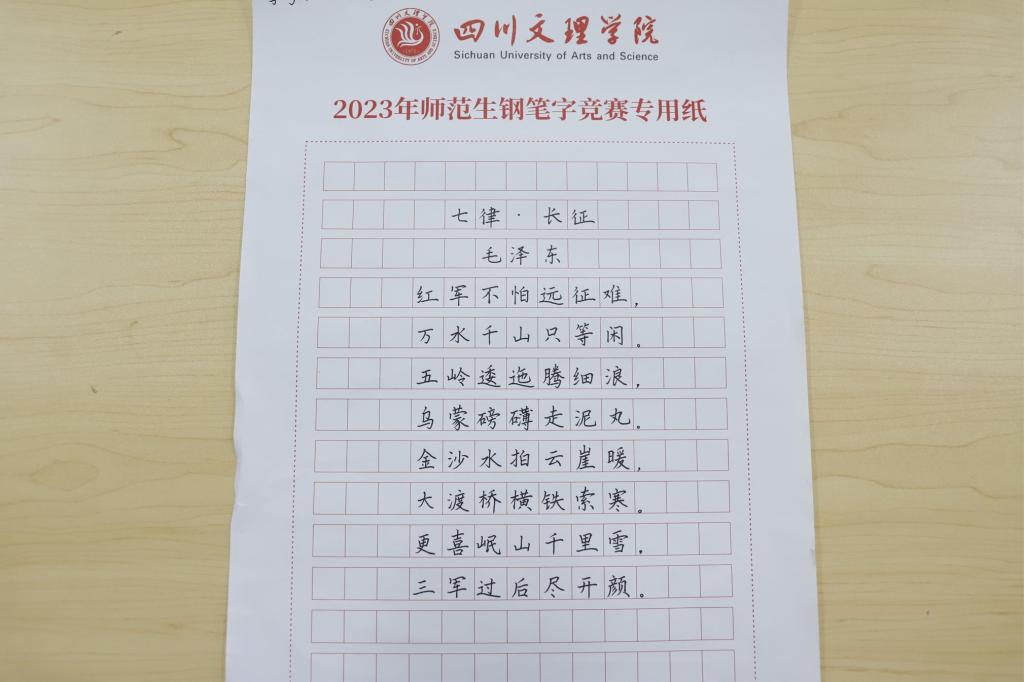 四川文理学院
Sichuan University of Arts and Science
2023年师范生钢笔字竞赛专用纸
七律·长征
毛泽东
红军不怕远征难,
万水千山只等闲。
五岭逶迤腾细浪,
乌蒙磅礴走泥丸。
金沙水拍云崖暖,
大渡桥横铁索寒。
更喜岷山千里雪,
三军过后尽开颜。